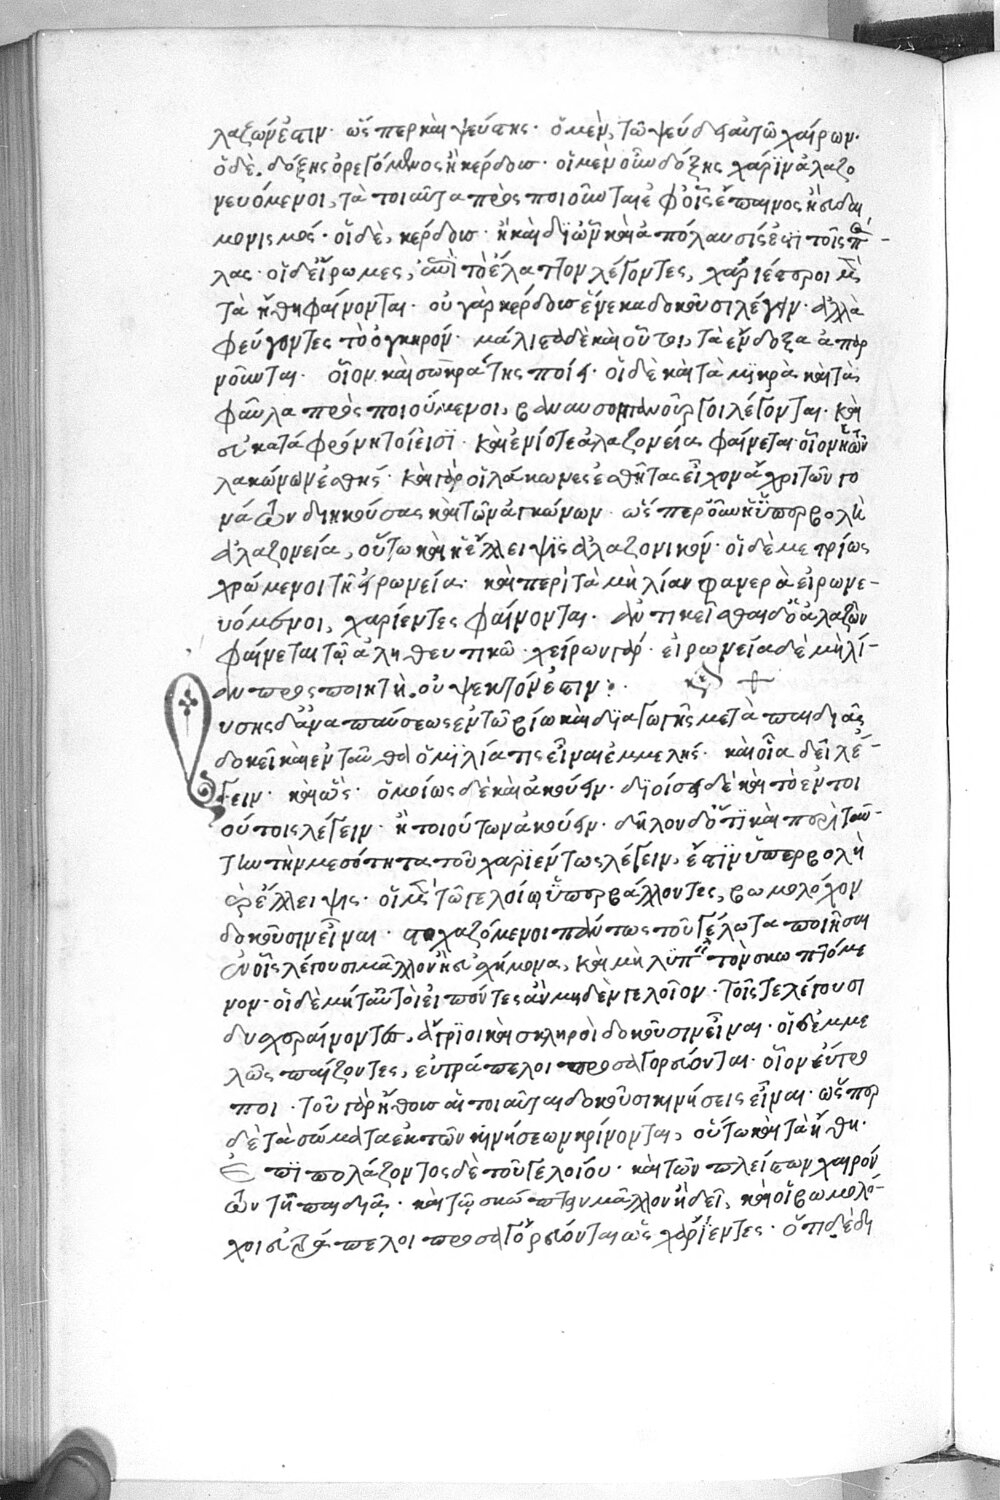 λαζών ἐστιν· ὥσπερ καὶ ψεύστης· ὁ μὲν, τῶ ψεύδει αὐτῶ χαίρων·
ὁ δὲ, δόξης ὀρεγόμενος ἢ κέρδους· οἱ μὲν οὖν δόξης χάριν ἀλαζο
νευόμενοι, τὰ τοιαῦτα προσποιοῦνται ἐφ οἷς ἔπαινος ἢ εὐδαι
μονισμός· οἱ δὲ, κέρδους· ἢ καὶ δι ὧν καὶ ἀπόλαυσίς ἐστι τοῖς πέ-
λας· οἱ δ εἴρωνες, ἐπὶ τὸ ἔλαττον λέγοντες, χαριέστεροι μὲν
τὰ ἤθη φαίνονται· οὐ γὰρ κέρδους ἕνεκα δοκοῦσι λέγειν· ἀλλὰ
φεύγοντες τὸ ὀγκηρόν· μάλιστα δὲ καὶ οὗτοι, τὰ ἔνδοξα ἀπαρ
νοῦνται· οἷον καὶ σωκράτης ποίει· οἱ δὲ καὶ τὰ μικρὰ καὶ τὰ
φαῦλα προσποιούμενοι, βαυκοπανοῦργοι λέγονται· καὶ
εὐκαταφρόνητοί εἰσι· καὶ ἐνίοτε ἀλαζονεία φαίνεται· οἷον ἡ τῶν
λακώνων ἐσθής· καὶ γὰρ οἱ λάκωνες ἐσθῆτας εἶχον ἄχρι τῶν γο
νάτων διηκούσας καὶ τῶν ἀγκώνων· ὥσπερ οὖν ἡ ὑπερβολὴ
ἀλαζονεία, οὕτω καὶ ἡ ἔλλειψις ἀλαζονικόν· οἱ δὲ μετρίως
χρώμενοι τῆ εἰρωνεία· καὶ περὶ τὰ μὴ λίαν φανερὰ εἰρωνε-
υόμενοι, χαρίεντες φαίνονται· ἀντικεῖσθαι δ ὁ ἀλαζὼν
φαίνεται τῶ ἀληθευτικῶ· χείρων γάρ· εἰρωνεία δὲ μὴ λί-
αν προσποιητὴ, οὐ ψεκτόν ἐστιν:·
υσης δ ἀναπαύσεως ἐν τῶ βίω καὶ διαγωγῆς μετὰ παιδιᾶς
δοκεῖ καὶ ἐνταῦθα ὁμιλία τις εἶναι ἐμμελής· καὶ οἷα δεῖ λέ-
γειν· καὶ ὡς· ὁμοίως δὲ καὶ ἀκούειν· διοίσει δὲ καὶ τὸ ἐν τοι
ούτοις λέγειν· ἢ τοιούτων ἀκούειν· δῆλον δ ὅτι καὶ περὶ ταύ-
την τὴν μεσότητα τοῦ χαριέντως λέγειν, ἔστιν ὑπερβολὴ
καὶ ἔλλειψις· οἱ μὲν τῶ γελοίω ὑπερβάλλοντες, βωμολόχον
δοκοῦσιν εἶναι· στοχαζόμενοι πάντως τοῦ γέλωτα ποιῆσαι
ἐν οἷς λέγουσι μᾶλλον ἢ εὐσχήμονα, καὶ μὴ λυπεῖν τὸν σκωπτόμε
νον· οἱ δὲ μήτ αὐτοὶ εἰπόντες ἂν μηδὲν γελοῖον· τοῖς τε λέγουσι
δυσχεραίνοντες, ἄγριοι καὶ σκληροὶ δοκοῦσιν εἶναι· οἱ δ ἐμμε
λῶς παίζοντες, εὐτράπελοι προσαγορεύονται· οἷον εὔτρο
ποι· τοῦ γὰρ ἤθους αἱ τοιαῦται δοκοῦσι κινήσεις εἶναι· ὥσπερ
δὲ τὰ σώματα ἐκ τῶν κινήσεων κρίνονται, οὕτω καὶ τὰ ἤθη·
Ἐπιπολάζοντος δὲ τοῦ γελοίου· καὶ τῶν πλείστων χαιρόν
των τῆ παιδιᾶ· καὶ τῶ σκώπτειν μᾶλλον ἢ δεῖ, καὶ οἱ βωμολό-
χοι εὐτράπελοι προσαγορεύονται ὡς χαρίεντες· ὅτι δὲ δι